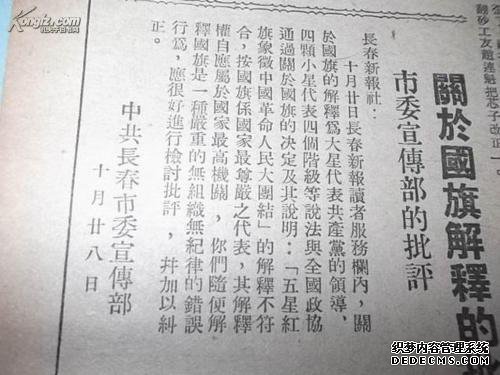 翻砂工友趙連魁把芯子
關於國旗解釋的
市委宣傳部的批評
長春新報社：
十月廿日長春新報讀者服務欄內，關
於國旗的解釋爲大星代表共產黨的領導，
四顆小星代表四個階級等說法與全國政協
通過關於國旗的決定及其說明：「五星紅
旗象徵中國革命人民大團結」的解釋不符
合，按國旗係國家最尊嚴之代表，其解釋
權自應屬於國家最高機關，你們隨便解
釋國旗是一種嚴重的無組織無紀律的錯誤
行爲，應很好進行檢討批評，幷加以糾
正。
中共長春市委宣傳部
十月廿八日
织梦内容管理系统
DEDECMS.COM